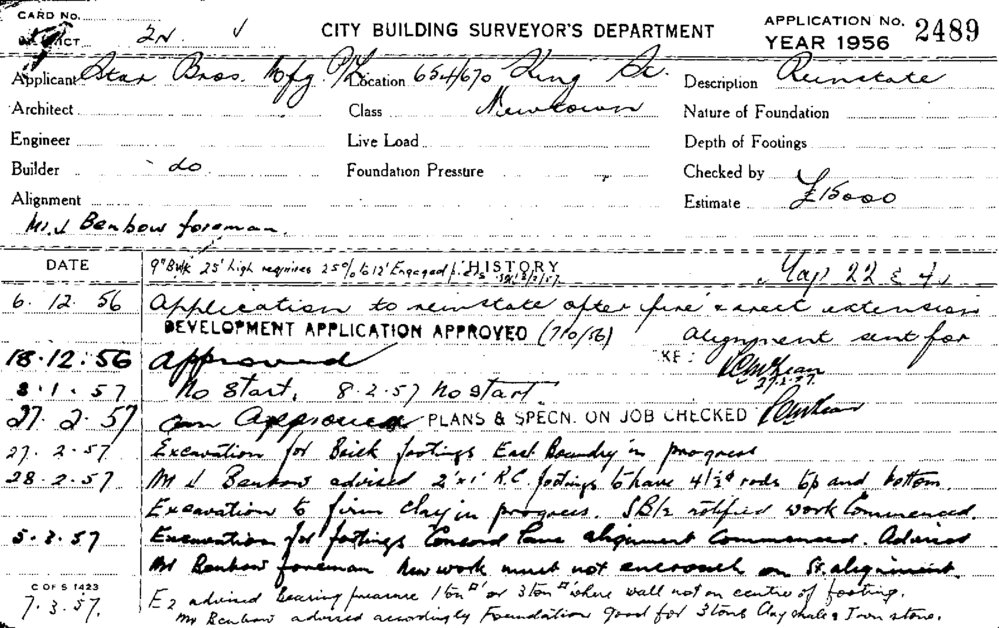 CARD No.
CITY BUILDING SURVEYOR'S DEPARTMENT
APPLICATION No. 2489
DISTRICT 2N
YEAR 1956
Applicant Star Bros. Mfg. P/L Location 654/670 King St. Description Reinstate
Architect Class Newtown Nature of Foundation
Engineer Live Load Depth of Footings
Builder do Foundation Pressure Checked by
Alignment Estimate £15000
Mr. J Benbow foreman.
DATE HISTORY Map 22 & 4
9" Bwk 25' high requires 25% to 12' Engaged piers
6. 12. 56 Application to reinstate after fire & erect extension
DEVELOPMENT APPLICATION APPROVED (7/10/56) alignment sent for
18.12.56 Approved
27.2.57.
8.1.57 No Start. 8.2.57 No start.
27.2.57 Approved PLANS & SPECN. ON JOB CHECKED
27.2.57. Excavation for Brick footings East Boundry in progress
28.2.57 Mr J Benbow advised 2'x1' R.C. footings to have 4 1/2" rods top and bottom.
Excavation to firm clay in progress. notified work Commenced.
5.3.57 Excavation for footings Concord Lane alignment Commenced. Advised
Mr Benbow foreman New work must not encroach on St. alignment.
C OF S 1423
7.3.57. E2 advised Bearing pressure 1 ton □' or 3 ton □' where wall not on centre of footing.
Mr Benbow advised accordingly Foundation good for 3 tons Clay shale & Ironstone.